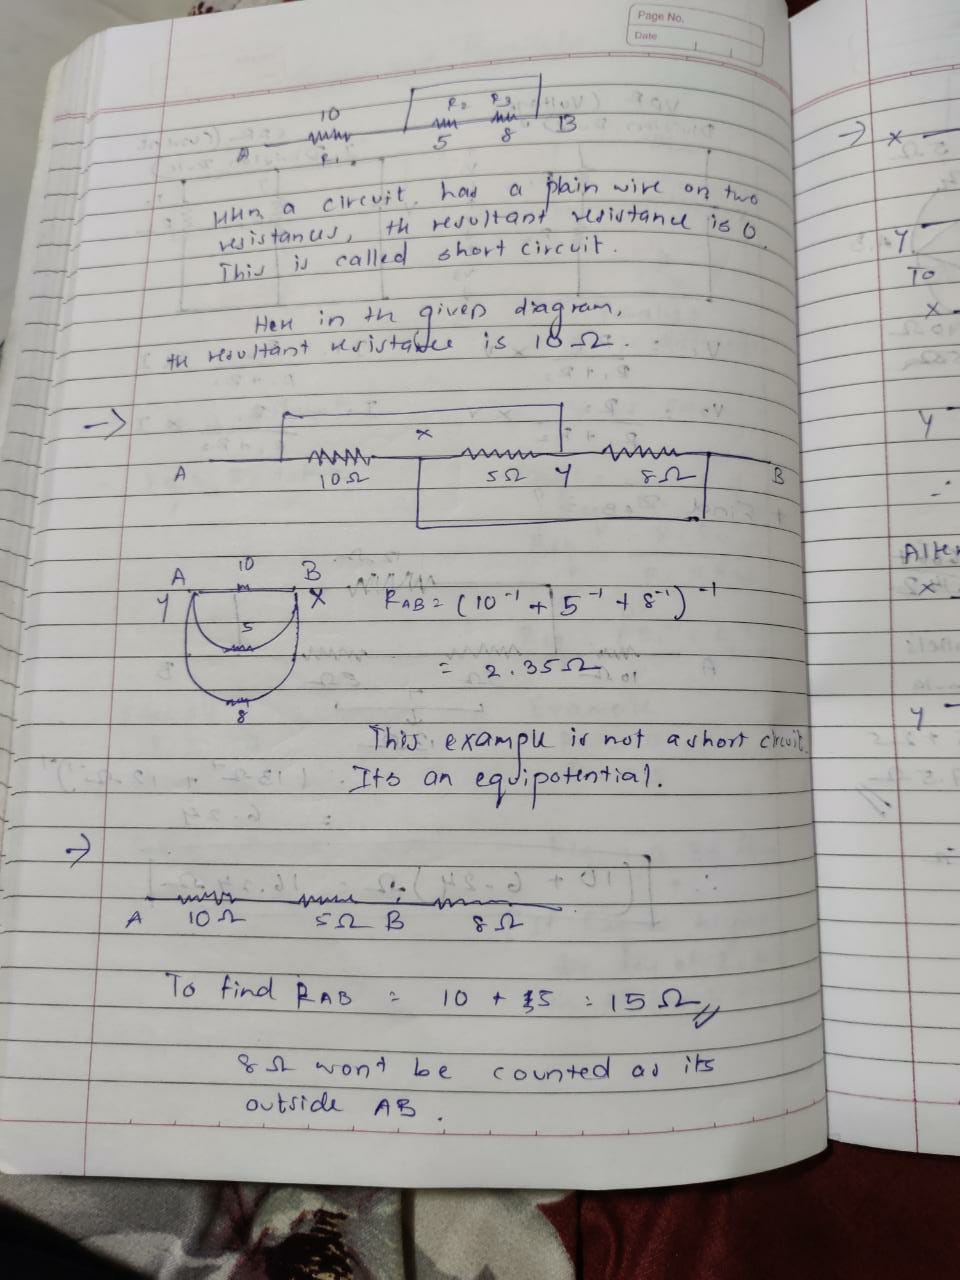 Page No.
Date
10 R2 R3
A R1 5 8 B
When a circuit has a plain wire on two
resistances, the resultant resistance is 0.
This is called short circuit.
Here in the given diagram,
the resultant resistance is 10 Ω.
→ x
A 10Ω 5Ω Y 8Ω B
10
A B
Y X
5
8
RAB = (10⁻¹ + 5⁻¹ + 8⁻¹)⁻¹
= 2.35Ω
This example is not a short circuit.
Its an equipotential.
→
A 10Ω 5Ω B 8Ω
To find RAB = 10 + 5 = 15 Ω
8Ω wont be counted as its
outside AB.
→ x
5Ω
Y
To
x
Y
∴
x
Y